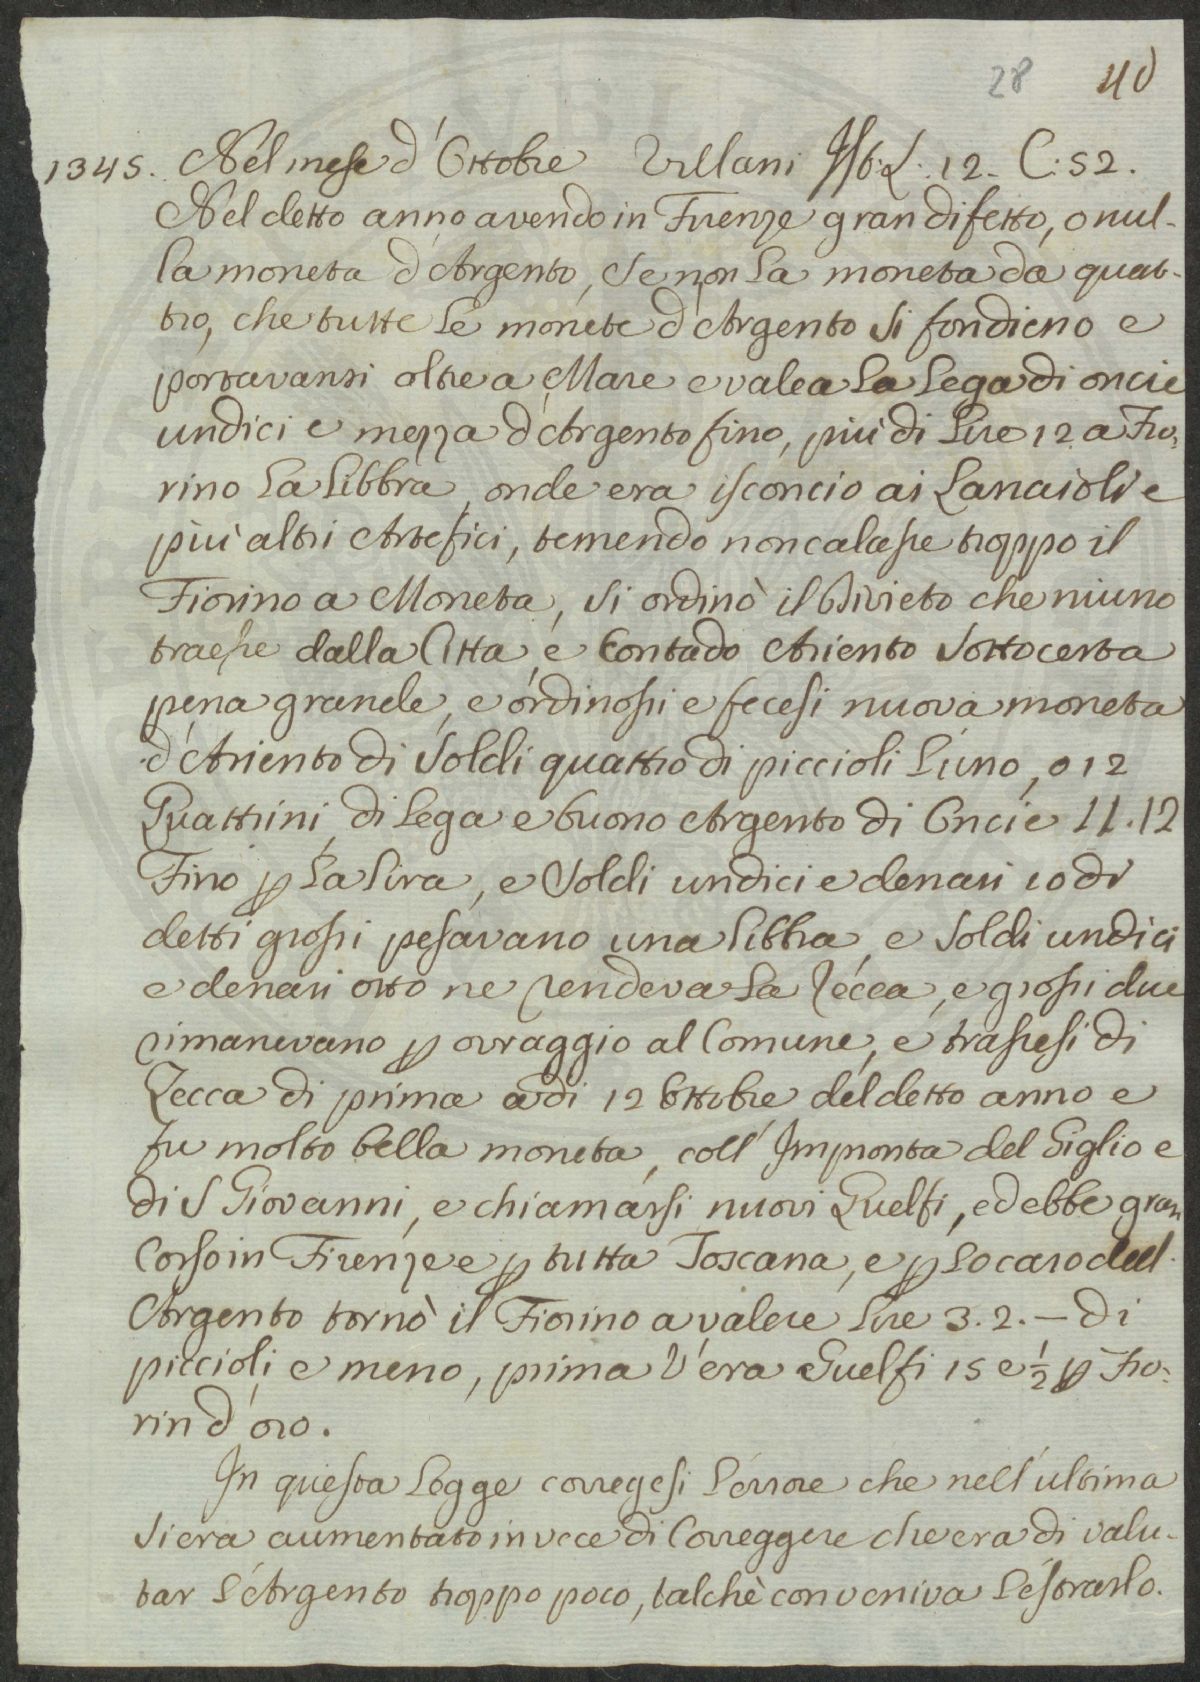 28 40
1345. Nel mese d'Ottobre Villani Ist: L. 12. C: 52.
Nel detto anno avendo in Firenze gran difetto, o nul-
la moneta d'Argento, se non la moneta da quat-
tro, che tutte le monete d'Argento si fondieno e
portavansi oltre a Mare e valea la Lega di oncie
undici e mezza d'Argento fino, più di Lire 12 a Fio-
rino la Libbra, onde era isconcio ai Lanaioli e
più altri Artefici, temendo non calasse troppo il
Fiorino a Moneta, si ordinò il Divieto che niuno
traesse dalla Città e Contado Ariento sotto certa
pena grande, e ordinossi e fecesi nuova moneta
d'Ariento di Soldi quattro di piccioli l'uno, o 12
Quattrini, di Lega e buono Argento di Oncie 11.12
Fino p la Lira, e Soldi undici e denari 10 di
detti grossi pesavano una Libbra, e Soldi undici
e denari otto ne rendeva la Zecca, e grossi due
rimanevano p ovraggio al Comune, e trassesi di
Zecca di prima adi 12 Ottobre del detto anno e
fu molto bella moneta, coll'Impronta del Giglio e
di S Giovanni, e chiamarsi nuovi Guelfi, ed ebbe gran
Corso in Firenze e p tutta Toscana, e p lo caro dell
Argento tornò il Fiorino a valere Lire 3. 2. — di
piccioli e meno, prima v'era Guelfi 15 e ½ p Fio-
rin d'oro.
In questa Legge corregesi l'errore che nell'ultima
si era aumentato in vece di Correggere che era di valu-
tar l'Argento troppo poco, talchè conveniva l'estrarlo.